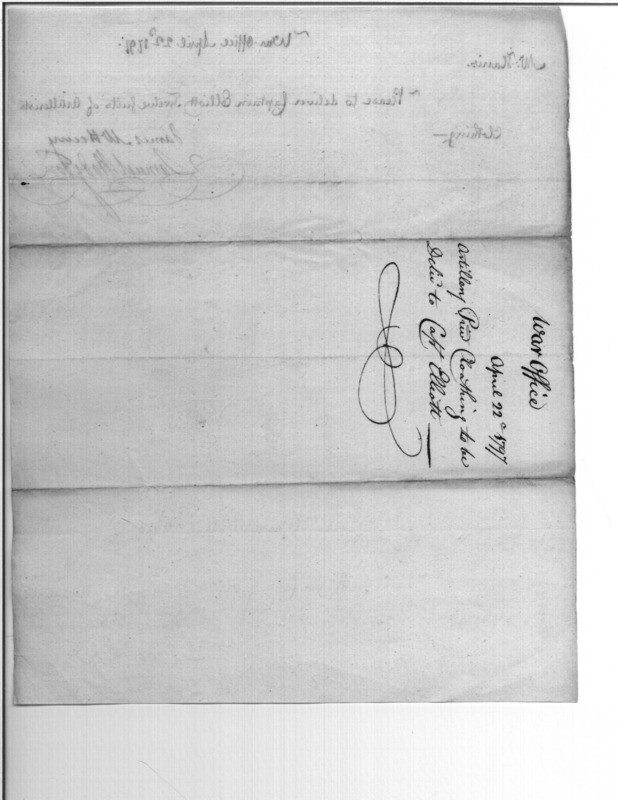 War Office
April 22d 1797
Artillery Priv Cloathing to be
Delivd to Capt Elliott
War Office April 22d 1797.
Mr. Harris.
Please to deliver Captain Elliott Twelve suits of Artillerists
Clothing
James McHenry
Samuel Hodgdon